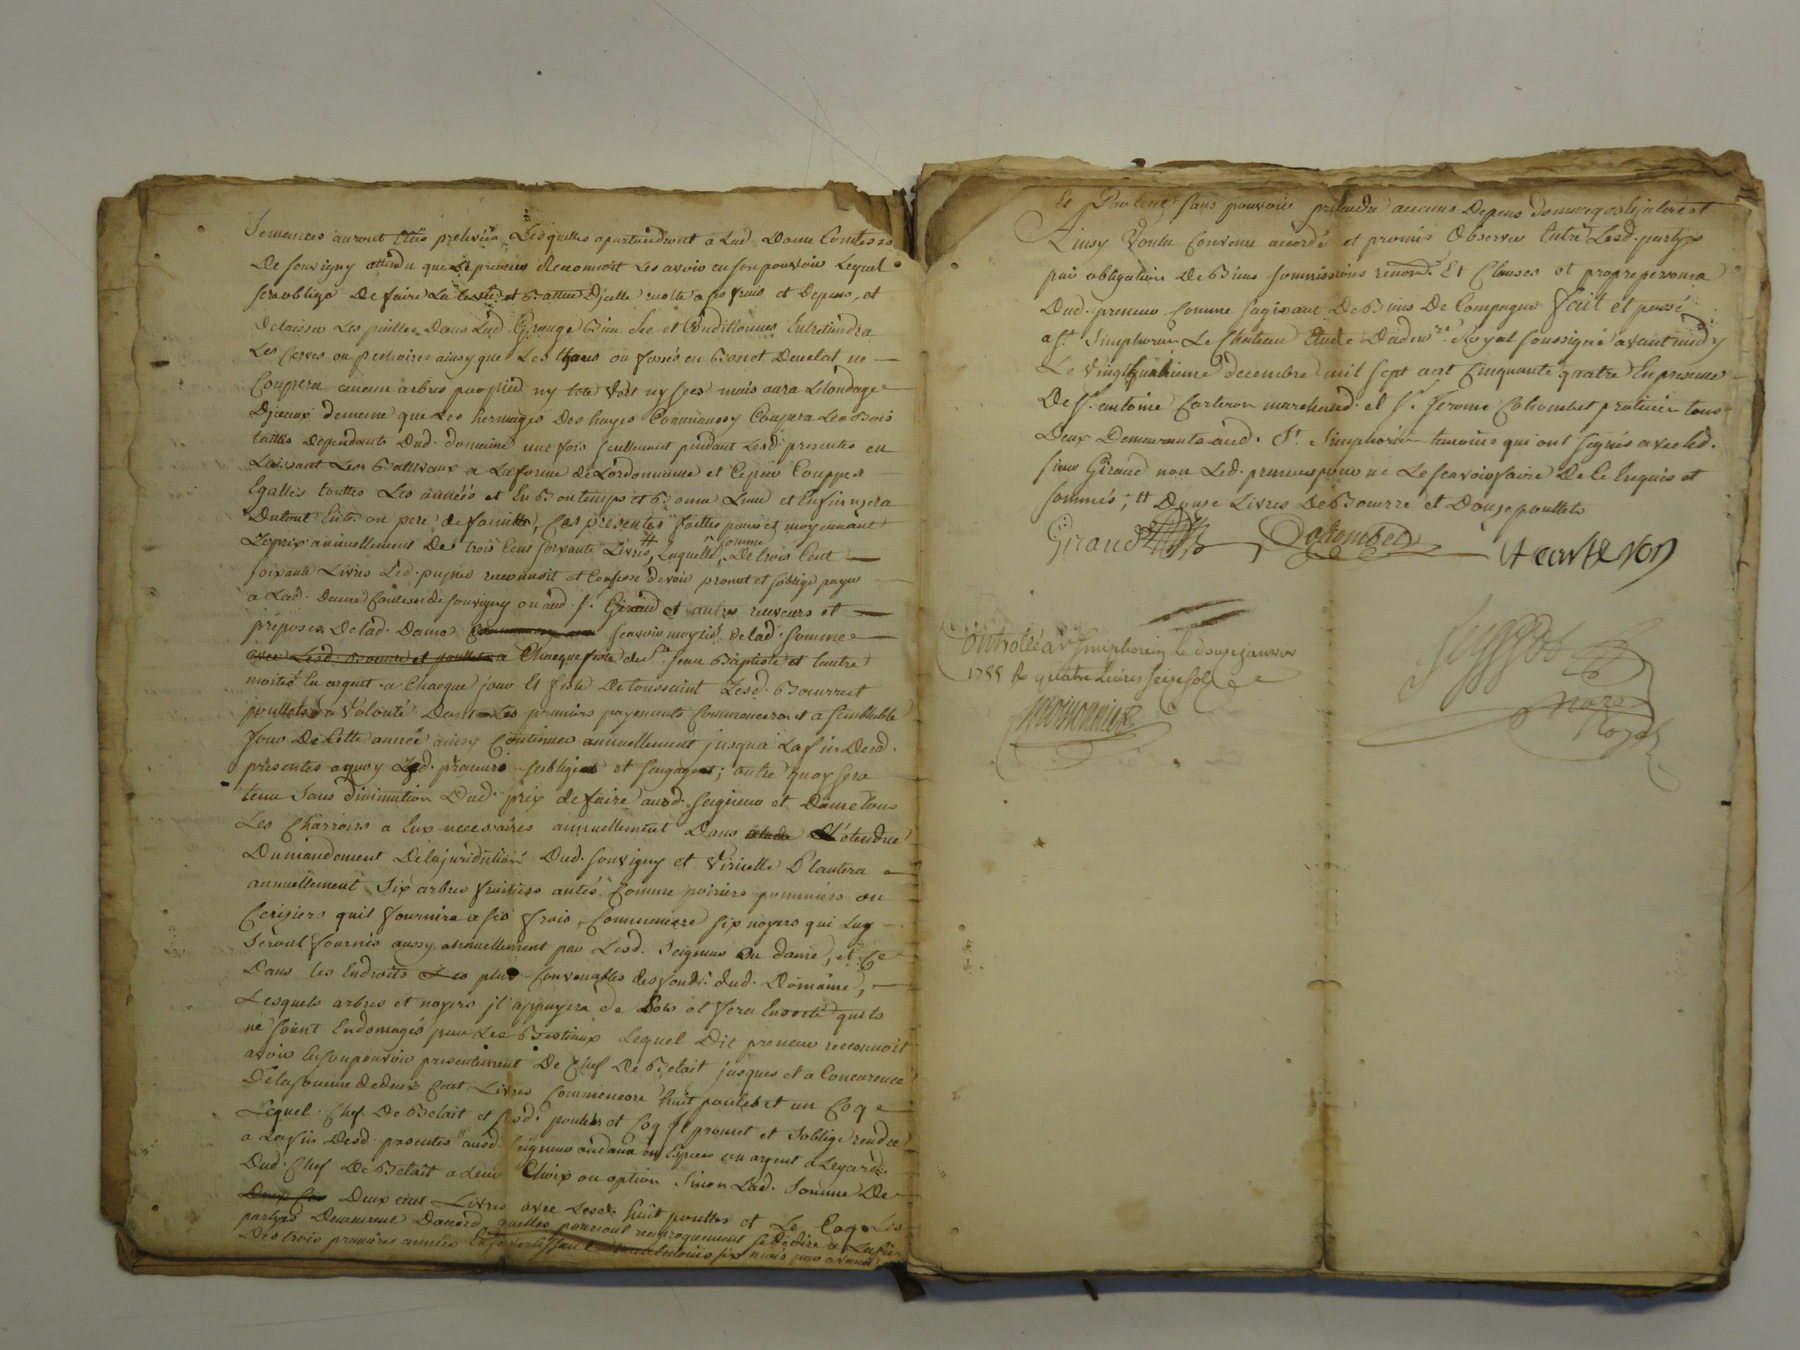 semances auront Etés prelevées, Lesquelles apartiendront a Lad. Dame Comtesse
De souvigny attendu que Le preneur Reconnoit Les avoir en son pouvoir Lequel
sera obligé De faire La et Battue D'jcelle a ses frais et Depens, et
Delaisser Les pailles Dans Lad. Grange Bien et Conditionnés, Entretiendra
Les Serves ou pechoires ainsy que Les ou fossés en Bon et Deu etat ne
Coupera aucun arbres par pied ny tete Vert ny sec mais aura Lelondage
D'jceux demême que Les hermages Des hayes Comm'aussy Coupera Les Bois
taillis Dependants Dud. domaine une fois seullement pendant Lesd. presentes en
Laissant Les Ballivaux a La forme de Lordonnance et Ce par Couppes
Egalles touttes Les années et En Bon temps et Bonne Lune et Enfin usera
Du tout En bon pere de famille, Ces presentes faittes pour et moyennant
Le prix annuellement De trois Cent soixante Livres, Laquelle somme De trois Cent
soixante Livres Led. preneur reconnoit et Confesse devoir promet et soblige payer
a Lad. Dame Comtesse de souvigny ou aud. Sr. Giraud et autres receveurs et
preposés De lad. Dame scavoir moytié de lad. somme
avec Lesd. Beurre et poullets a Chaque feste de St. Jean Baptiste et lautre
moitié En argent a Chaque jour Et feste De toussaint Lesd. Beurre et
poullets a Volonté Dont Les premiers payements Commenceront a semblable
Jour De Cette année ainsy Continuer annuellement jusqu'a La fin Desd.
presentes a quoy Led. preneur soblige et sengage; outre quoy sera
tenu sans diminution Dud. prix de faire aud. seigneur et Dame tous
Les Charrois a Eux necessaires annuellement Dans L'étendue
Du mandement De la juridiction Dud. souvigny et Viricelle Plantera
annuellement Six arbres fruitiers antés Comme poiriers pommiers ou
Cerisiers quil fournira a ses frais, Comm'encore six noyers qui Luy
seront fournis aussy annuellement par Lesd. Seigneur ou dame, et Ce
Dans les Endroits plus Convenables des fonds dud. Domaine,
Lesquels arbres et noyers jl appuyera de Bois et fera Ensorte quils
ne soient Endomagés par Les Bestiaux Lequel Dit preneur reconnoit
avoir En son pouvoir presentement De Chef De Betail jusques et a Concurence
De la somme de deux Cent Livres Comm'encore huit poules et un Coq
Lequel Chef De Betail et lesd. poules et Coq Jl promet et soblige rendre
a La fin Desd. presentes aud. seigneur ou dame en Espece ou argent a Legard
Dud. Chef De Betail a Leur Choix ou option Sinon Lad. Somme De
Deux cent Livres avec Lesd. huit poulles et Le Coq Les
partyes Demeurent Daccord quelles pourront reciproquement se Dedire a La fin
Des trois premieres années En savertissant six mois par avance
Et Par Ecrit sans pouvoir pretendre aucuns Depens domages & jnterest
Ainsy Voulu Convenu accordé et promis Observer Entre Lesd. partyes
par obligation De Biens soumissions renond. Et Clauses et propre personne
Dud. preneur Comme sagissant De Biens De Campagne Fait et passé
a St. Simphorien Le Chateau Etude Dud. nre. Royal soussigné avant midy
Le Vingt decembre mil sept cent Cinquante quatre En presence
De Sr. antoine Carteron marchand et Sr. Jerome Cohombet praticien tous
Deux Demeurants aud. St. Simphorien temoins qui ont signés avec led.
sieur Giraud non Led. preneur pour ne Le scavoir faire De Ce Enquis et
sommés; # Douze Livres De Beurre et Douze poullets
Giraud Cohombet A carteron
Controllé a St Simphorien le douze janvier
1755 R quatre Livres seize sols
nore
Royal